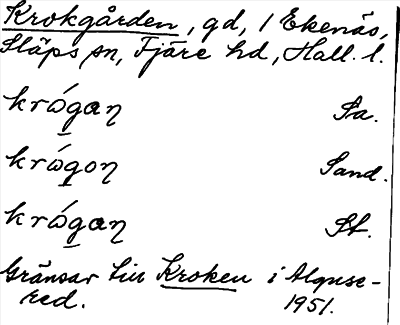 Krokgården, gd, 1 Ekenäs,
Släps sn, Fjäre hd, Hall. l.
krώgaŋ Sa.
krώgoŋ Sand.
krώgaŋ St.
Gränsar till Kroken i Alguse-
red. 1951.